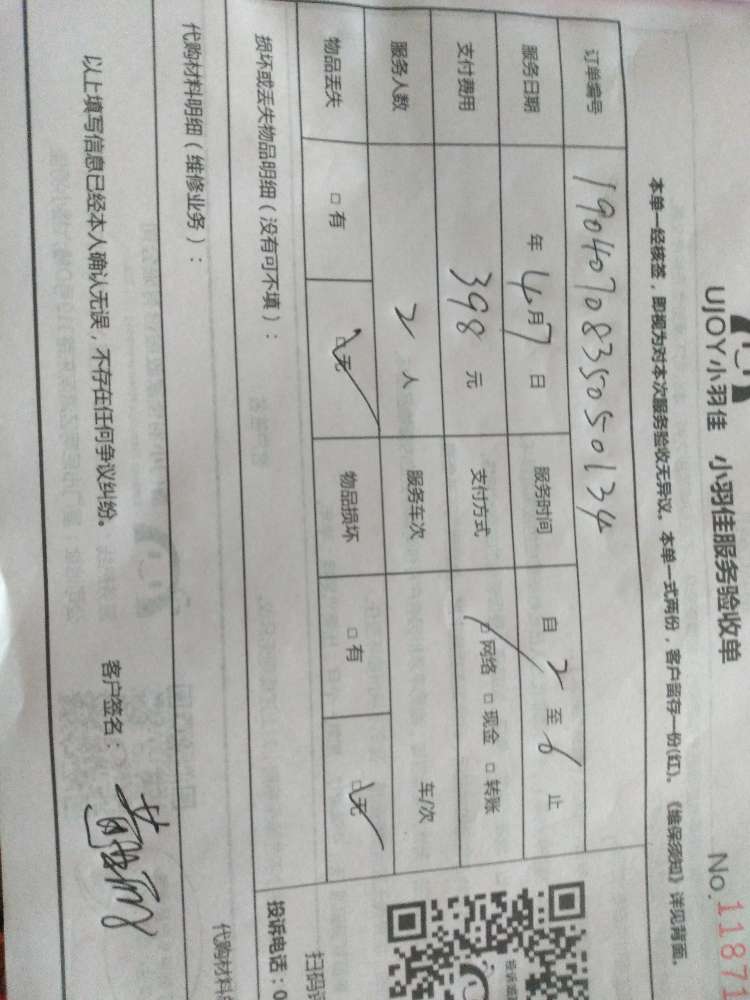 UJOY小羽佳 小羽佳服务验收单
No.11871
本单一经核签，即视为对本次服务验收无异议。本单一式两份，客户留存一份(红)。《维保须知》详见背面。
订单编号 1904070835050134
服务日期 年4月7日 服务时间 自2至6止
支付费用 398元 支付方式 □网络 □现金 □转账
服务人数 2人 服务车次 车/次
物品丢失 □有 □无 物品损坏 □有 □无
损坏或丢失物品明细（没有可不填）：
代购材料明细（维修业务）：
代购材料
以上填写信息已经本人确认无误，不存在任何争议纠纷。 客户签名：
扫码
投诉电话：0